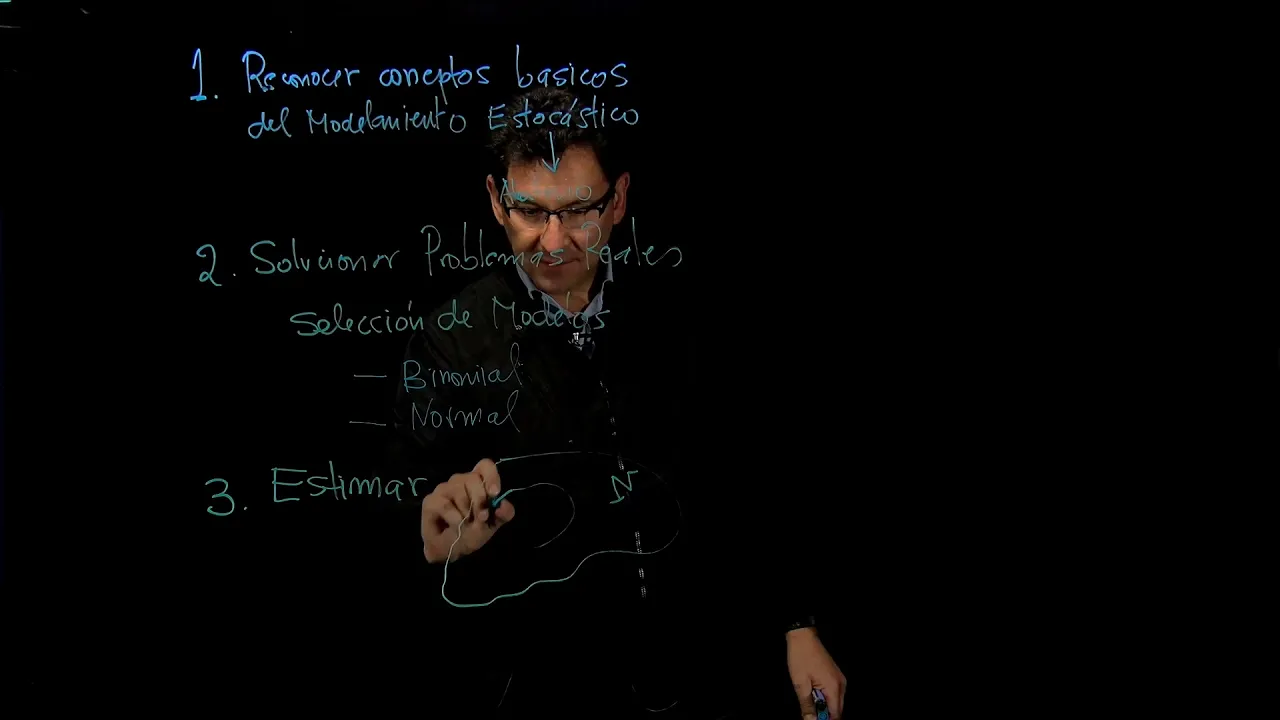 1. Reconocer coneptos basicos
del Modelamiento Estocástico
2. Solucionar Problemas Reales
Selección de Modelos
— Binomial
— Normal
3. Estimar
N